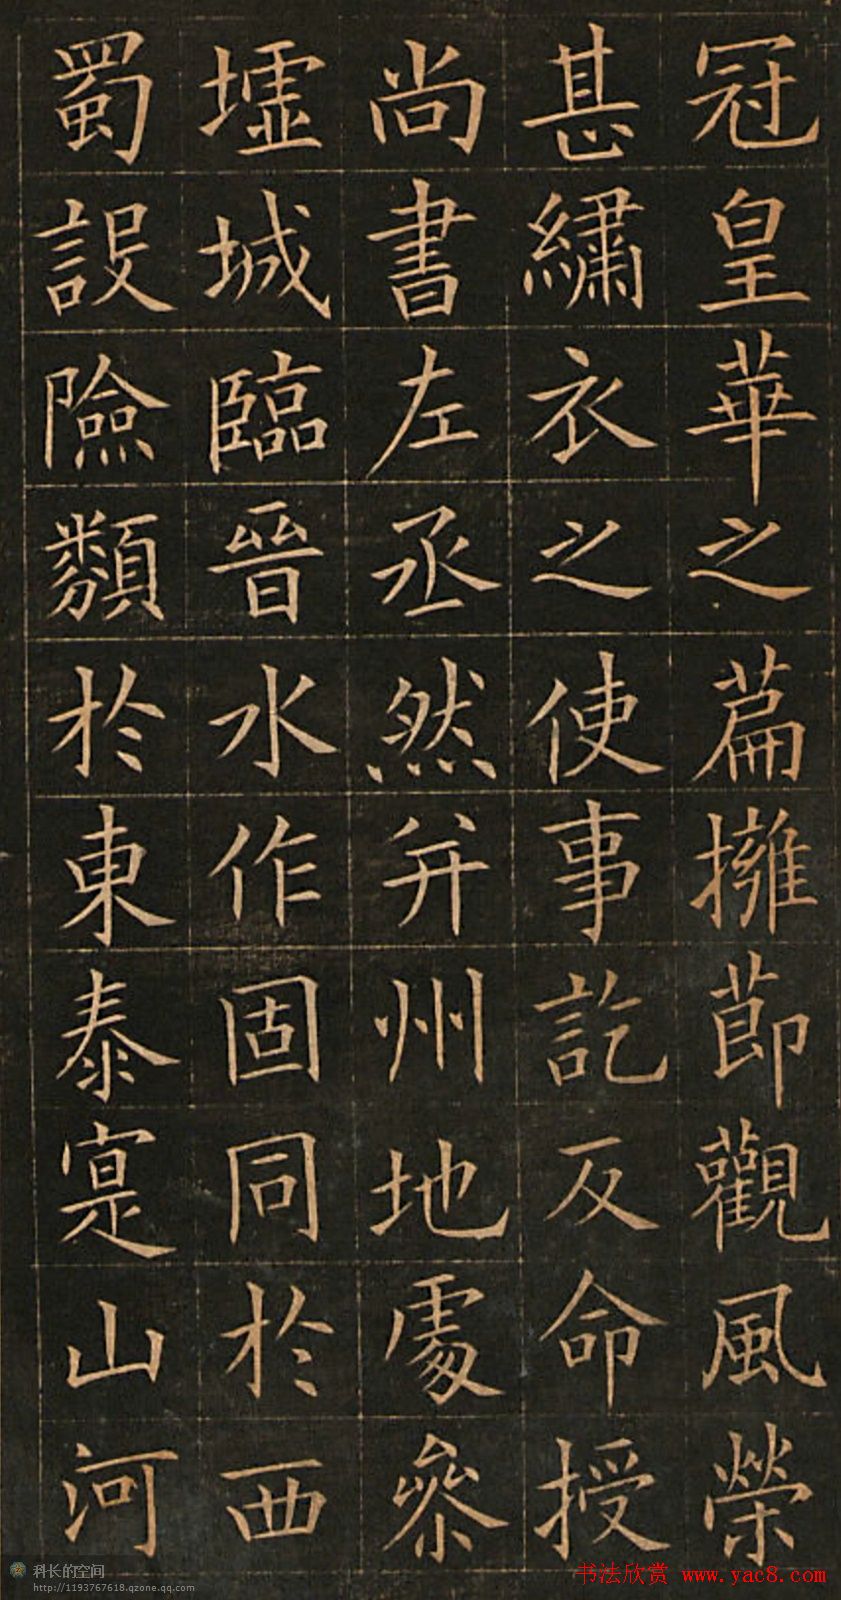 冠皇華之篇擁節觀風榮
甚繡衣之使事訖反命授
尚書左丞然并州地處參
墟城臨晉水作固同於西
蜀設險類於東泰寔山河
科长的空间
http://1193767618.qzone.qq.com
书法欣赏 www.yac8.com